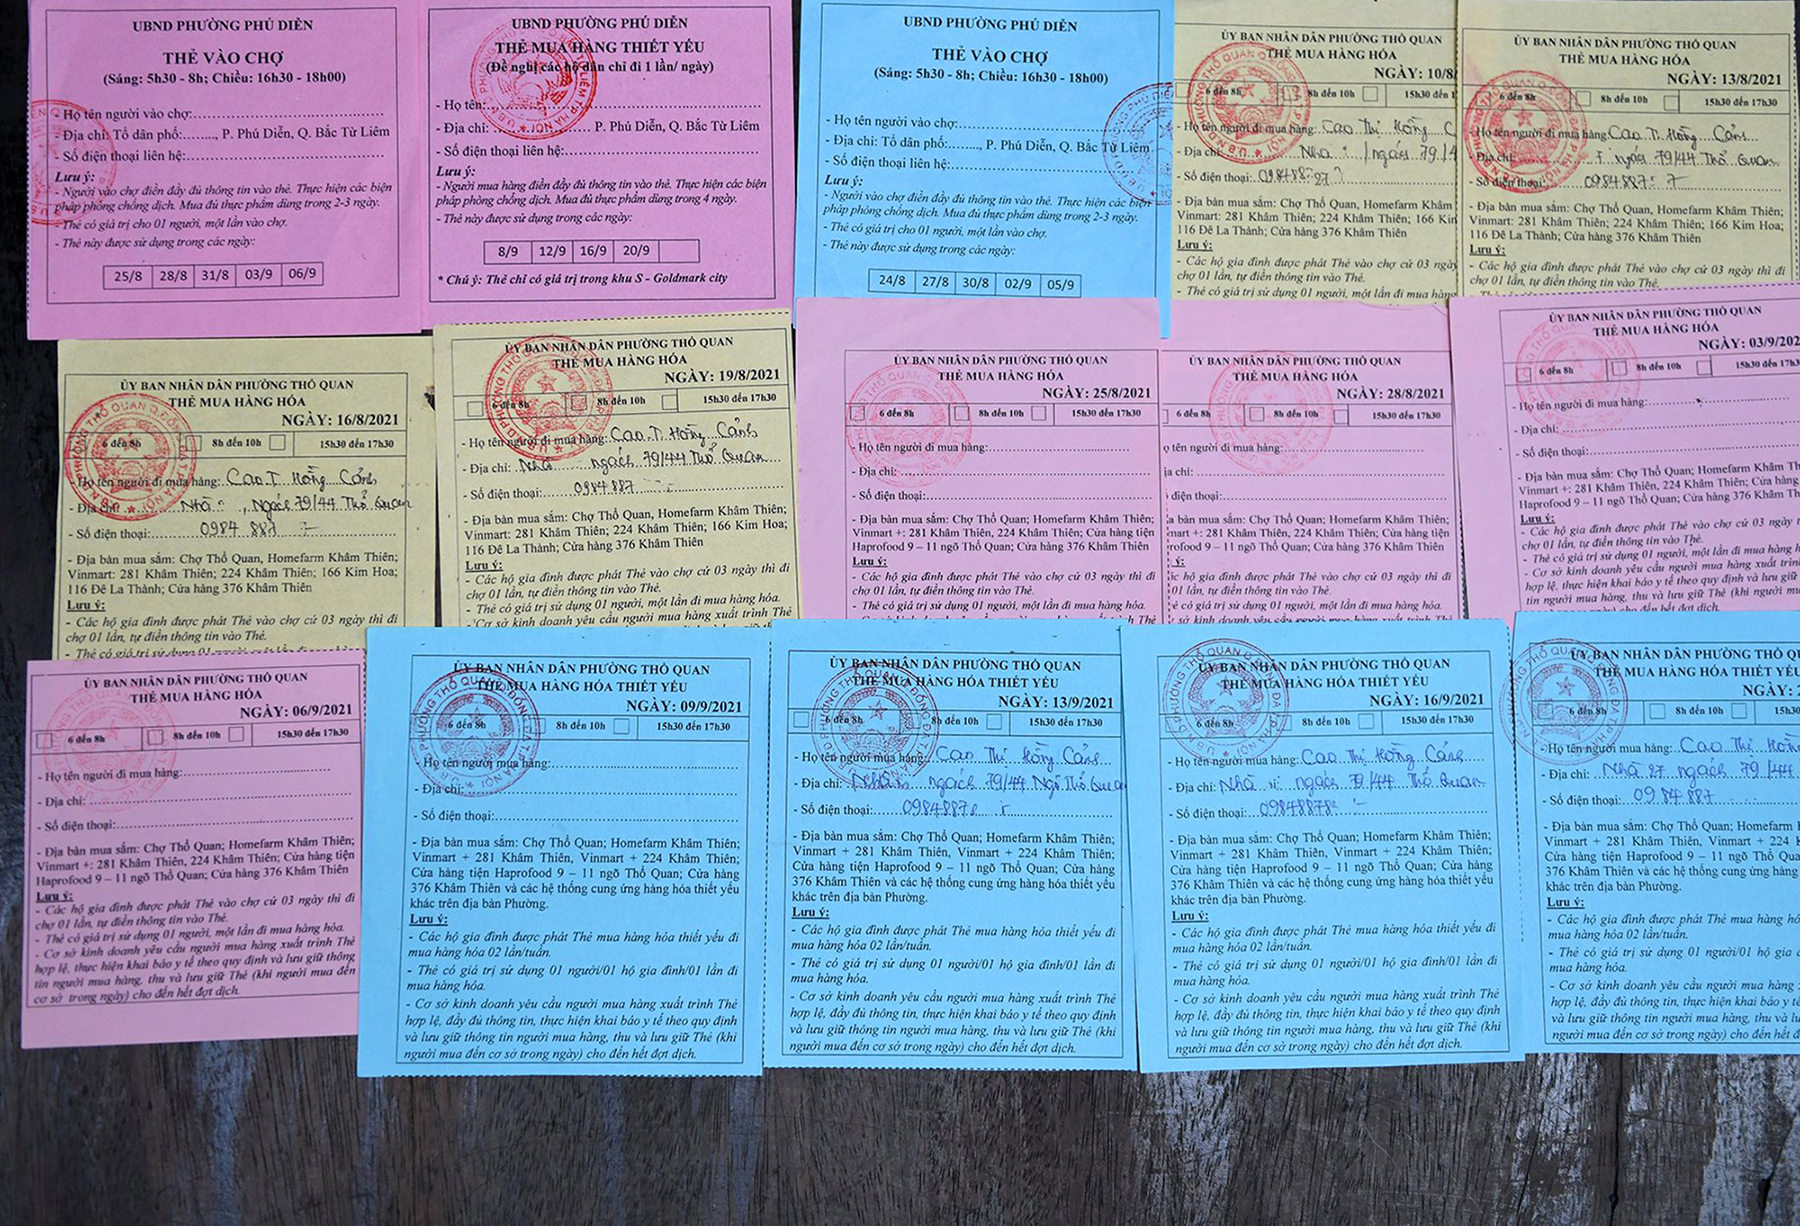 UBND PHƯỜNG PHÚ DIỄN
THẺ VÀO CHỢ
(Sáng: 5h30 - 8h; Chiều: 16h30 - 18h00)
- Họ tên người vào chợ:
- Địa chỉ: Tổ dân phố:......., P. Phú Diễn, Q. Bắc Từ Liêm
- Số điện thoại liên hệ:
Lưu ý:
- Người vào chợ điền đầy đủ thông tin vào thẻ. Thực hiện các biện
pháp phòng chống dịch. Mua đủ thực phẩm dùng trong 2-3 ngày.
- Thẻ có giá trị cho 01 người, một lần vào chợ.
- Thẻ này được sử dụng trong các ngày:
25/8 28/8 31/8 03/9 06/9
UBND PHƯỜNG PHÚ DIỄN
THẺ MUA HÀNG THIẾT YẾU
(Đề nghị các hộ dân chỉ đi 1 lần/ ngày)
- Họ tên:
- Địa chỉ: P. Phú Diễn, Q. Bắc Từ Liêm
- Số điện thoại liên hệ:
Lưu ý:
- Người mua hàng điền đầy đủ thông tin vào thẻ. Thực hiện các biện
pháp phòng chống dịch. Mua đủ thực phẩm dùng trong 4 ngày.
- Thẻ này được sử dụng trong các ngày:
8/9 12/9 16/9 20/9
* Chú ý: Thẻ chỉ có giá trị trong khu S - Goldmark city
UBND PHƯỜNG PHÚ DIỄN
THẺ VÀO CHỢ
(Sáng: 5h30 - 8h; Chiều: 16h30 - 18h00)
- Họ tên người vào chợ:
- Địa chỉ: Tổ dân phố:......., P. Phú Diễn, Q. Bắc Từ Liêm
- Số điện thoại liên hệ:
Lưu ý:
- Người vào chợ điền đầy đủ thông tin vào thẻ. Thực hiện các biện
pháp phòng chống dịch. Mua đủ thực phẩm dùng trong 2-3 ngày.
- Thẻ có giá trị cho 01 người, một lần vào chợ.
- Thẻ này được sử dụng trong các ngày:
24/8 27/8 30/8 02/9 05/9
ỦY BAN NHÂN DÂN PHƯỜNG THỔ QUAN
THẺ MUA HÀNG HÓA
NGÀY: 10/8
6 đến 8h 8h đến 10h 15h30 đến
- Họ tên người đi mua hàng: Cao Thị Hồng C
- Địa chỉ: Nhà ngách 79/4
- Số điện thoại:
- Địa bàn mua sắm: Chợ Thổ Quan, Homefarm Khâm Thiên;
Vinmart: 281 Khâm Thiên; 224 Khâm Thiên; 166 Kim
116 Đê La Thành; Cửa hàng 376 Khâm Thiên
Lưu ý:
- Các hộ gia đình được phát Thẻ vào chợ cứ 03 ngày
chợ 01 lần, tự điền thông tin vào Thẻ.
- Thẻ có giá trị sử dụng 01 người, một lần đi mua hàng
ỦY BAN NHÂN DÂN PHƯỜNG THỔ QUAN
THẺ MUA HÀNG HÓA
NGÀY: 13/8/2021
6 đến 8h 8h đến 10h 15h30 đến 17h30
- Họ tên người đi mua hàng: Cao T. Hồng Cảnh
- Địa chỉ: ngách 79/44 Thổ Quan
- Số điện thoại: 0984887
- Địa bàn mua sắm: Chợ Thổ Quan, Homefarm Khâm Thiên;
Vinmart: 281 Khâm Thiên; 224 Khâm Thiên; 166 Kim Hoa;
116 Đê La Thành; Cửa hàng 376 Khâm Thiên
Lưu ý:
- Các hộ gia đình được phát Thẻ vào chợ cứ 03 ngày thì đi
chợ 01 lần, tự điền thông tin vào Thẻ.
ỦY BAN NHÂN DÂN PHƯỜNG THỔ QUAN
THẺ MUA HÀNG HÓA
NGÀY: 16/8/2021
6 đến 8h 8h đến 10h 15h30 đến 17h30
- Họ tên người đi mua hàng: Cao T. Hồng Cảnh
- Địa chỉ: Nhà , Ngách 79/44 Thổ Quan
- Số điện thoại: 0984 887
- Địa bàn mua sắm: Chợ Thổ Quan, Homefarm Khâm Thiên;
Vinmart: 281 Khâm Thiên; 224 Khâm Thiên; 166 Kim Hoa;
116 Đê La Thành; Cửa hàng 376 Khâm Thiên
Lưu ý:
- Các hộ gia đình được phát Thẻ vào chợ cứ 03 ngày thì đi
chợ 01 lần, tự điền thông tin vào Thẻ.
- Thẻ có giá trị sử dụng 01 người, một lần đi mua hàng hóa.
ỦY BAN NHÂN DÂN PHƯỜNG THỔ QUAN
THẺ MUA HÀNG HÓA
NGÀY: 19/8/2021
6 đến 8h 8h đến 10h 15h30 đến 17h30
- Họ tên người đi mua hàng: Cao T. Hồng Cảnh
- Địa chỉ: Nhà ngách 79/44 Thổ Quan
- Số điện thoại: 0984 887
- Địa bàn mua sắm: Chợ Thổ Quan, Homefarm Khâm Thiên;
Vinmart: 281 Khâm Thiên; 224 Khâm Thiên; 166 Kim Hoa;
116 Đê La Thành; Cửa hàng 376 Khâm Thiên
Lưu ý:
- Các hộ gia đình được phát Thẻ vào chợ cứ 03 ngày thì đi
chợ 01 lần, tự điền thông tin vào Thẻ.
- Thẻ có giá trị sử dụng 01 người, một lần đi mua hàng hóa.
- Cơ sở kinh doanh yêu cầu người mua hàng xuất trình Thẻ
ỦY BAN NHÂN DÂN PHƯỜNG THỔ QUAN
THẺ MUA HÀNG HÓA
NGÀY: 25/8/2021
6 đến 8h 8h đến 10h 15h30 đến 17h30
- Họ tên người đi mua hàng:
- Địa chỉ:
- Số điện thoại:
- Địa bàn mua sắm: Chợ Thổ Quan; Homefarm Khâm Thiên;
Vinmart +: 281 Khâm Thiên, 224 Khâm Thiên; Cửa hàng tiện
Haprofood 9 – 11 ngõ Thổ Quan; Cửa hàng 376 Khâm Thiên
Lưu ý:
- Các hộ gia đình được phát Thẻ vào chợ cứ 03 ngày thì đi
chợ 01 lần, tự điền thông tin vào Thẻ.
- Thẻ có giá trị sử dụng 01 người, một lần đi mua hàng hóa.
- Cơ sở kinh doanh yêu cầu người mua hàng xuất trình Thẻ
ỦY BAN NHÂN DÂN PHƯỜNG THỔ QUAN
THẺ MUA HÀNG HÓA
NGÀY: 28/8/2021
6 đến 8h 8h đến 10h 15h30 đến 17h30
ọ tên người đi mua hàng:
ịa chỉ:
ố điện thoại:
a bàn mua sắm: Chợ Thổ Quan; Homefarm Khâm Thiên;
mart +: 281 Khâm Thiên, 224 Khâm Thiên; Cửa hàng tiện
rofood 9 – 11 ngõ Thổ Quan; Cửa hàng 376 Khâm Thiên
ý:
ác hộ gia đình được phát Thẻ vào chợ cứ 03 ngày thì đi
01 lần, tự điền thông tin vào Thẻ.
ẻ có giá trị sử dụng 01 người, một lần đi mua hàng hóa.
sở kinh doanh yêu cầu người mua hàng xuất trình Thẻ
ỦY BAN NHÂN DÂN PHƯỜNG THỔ QUAN
THẺ MUA HÀNG HÓA
NGÀY: 03/9/202
6 đến 8h 8h đến 10h 15h30 đến 17h3
- Họ tên người đi mua hàng:
- Địa chỉ:
- Số điện thoại:
- Địa bàn mua sắm: Chợ Thổ Quan; Homefarm Khâm Th
Vinmart +: 281 Khâm Thiên, 224 Khâm Thiên; Cửa hàng
Haprofood 9 – 11 ngõ Thổ Quan; Cửa hàng 376 Khâm T
Lưu ý:
- Các hộ gia đình được phát Thẻ vào chợ cứ 03 ngày t
chợ 01 lần, tự điền thông tin vào Thẻ.
- Thẻ có giá trị sử dụng 01 người, một lần đi mua hàng h
- Cơ sở kinh doanh yêu cầu người mua hàng xuất trình
hợp lệ, thực hiện khai báo y tế theo quy định và lưu giữ
tin người mua hàng, thu và lưu giữ Thẻ (khi người mua
cơ sở trong ngày) cho đến hết đợt dịch.
ỦY BAN NHÂN DÂN PHƯỜNG THỔ QUAN
THẺ MUA HÀNG HÓA
NGÀY: 06/9/2021
6 đến 8h 8h đến 10h 15h30 đến 17h30
- Họ tên người đi mua hàng:
- Địa chỉ:
- Số điện thoại:
- Địa bàn mua sắm: Chợ Thổ Quan; Homefarm Khâm Thiên;
Vinmart +: 281 Khâm Thiên, 224 Khâm Thiên; Cửa hàng tiện
Haprofood 9 – 11 ngõ Thổ Quan; Cửa hàng 376 Khâm Thiên
Lưu ý:
- Các hộ gia đình được phát Thẻ vào chợ cứ 03 ngày thì đi
chợ 01 lần, tự điền thông tin vào Thẻ.
- Thẻ có giá trị sử dụng 01 người, một lần đi mua hàng hóa.
- Cơ sở kinh doanh yêu cầu người mua hàng xuất trình Thẻ
hợp lệ, thực hiện khai báo y tế theo quy định và lưu giữ thông
tin người mua hàng, thu và lưu giữ Thẻ (khi người mua đến
cơ sở trong ngày) cho đến hết đợt dịch.
ỦY BAN NHÂN DÂN PHƯỜNG THỔ QUAN
THẺ MUA HÀNG HÓA THIẾT YẾU
NGÀY: 09/9/2021
6 đến 8h 8h đến 10h 15h30 đến 17h30
- Họ tên người mua hàng:
- Địa chỉ:
- Số điện thoại:
- Địa bàn mua sắm: Chợ Thổ Quan; Homefarm Khâm Thiên;
Vinmart + 281 Khâm Thiên, Vinmart + 224 Khâm Thiên;
Cửa hàng tiện Haprofood 9 – 11 ngõ Thổ Quan; Cửa hàng
376 Khâm Thiên và các hệ thống cung ứng hàng hóa thiết yếu
khác trên địa bàn Phường.
Lưu ý:
- Các hộ gia đình được phát Thẻ mua hàng hóa thiết yếu đi
mua hàng hóa 02 lần/tuần.
- Thẻ có giá trị sử dụng 01 người/01 hộ gia đình/01 lần đi
mua hàng hóa.
- Cơ sở kinh doanh yêu cầu người mua hàng xuất trình Thẻ
hợp lệ, đầy đủ thông tin, thực hiện khai báo y tế theo quy định
và lưu giữ thông tin người mua hàng, thu và lưu giữ Thẻ (khi
người mua đến cơ sở trong ngày) cho đến hết đợt dịch.
ỦY BAN NHÂN DÂN PHƯỜNG THỔ QUAN
THẺ MUA HÀNG HÓA THIẾT YẾU
NGÀY: 13/9/2021
6 đến 8h 8h đến 10h 15h30 đến 17h30
- Họ tên người mua hàng: Cao Thị Hồng Cảnh
- Địa chỉ: Nhà ngách 79/44 Ngõ Thổ Quan
- Số điện thoại: 0984887
- Địa bàn mua sắm: Chợ Thổ Quan; Homefarm Khâm Thiên;
Vinmart + 281 Khâm Thiên, Vinmart + 224 Khâm Thiên;
Cửa hàng tiện Haprofood 9 – 11 ngõ Thổ Quan; Cửa hàng
376 Khâm Thiên và các hệ thống cung ứng hàng hóa thiết yếu
khác trên địa bàn Phường.
Lưu ý:
- Các hộ gia đình được phát Thẻ mua hàng hóa thiết yếu đi
mua hàng hóa 02 lần/tuần.
- Thẻ có giá trị sử dụng 01 người/01 hộ gia đình/01 lần đi
mua hàng hóa.
- Cơ sở kinh doanh yêu cầu người mua hàng xuất trình Thẻ
hợp lệ, đầy đủ thông tin, thực hiện khai báo y tế theo quy định
và lưu giữ thông tin người mua hàng, thu và lưu giữ Thẻ (khi
người mua đến cơ sở trong ngày) cho đến hết đợt dịch.
ỦY BAN NHÂN DÂN PHƯỜNG THỔ QUAN
THẺ MUA HÀNG HÓA THIẾT YẾU
NGÀY: 16/9/2021
6 đến 8h 8h đến 10h 15h30 đến 17h30
- Họ tên người mua hàng: Cao Thị Hồng Cảnh
- Địa chỉ: Nhà ngách 79/44 Thổ Quan
- Số điện thoại: 09848878
- Địa bàn mua sắm: Chợ Thổ Quan; Homefarm Khâm Thiên;
Vinmart + 281 Khâm Thiên, Vinmart + 224 Khâm Thiên;
Cửa hàng tiện Haprofood 9 – 11 ngõ Thổ Quan; Cửa hàng
376 Khâm Thiên và các hệ thống cung ứng hàng hóa thiết yếu
khác trên địa bàn Phường.
Lưu ý:
- Các hộ gia đình được phát Thẻ mua hàng hóa thiết yếu đi
mua hàng hóa 02 lần/tuần.
- Thẻ có giá trị sử dụng 01 người/01 hộ gia đình/01 lần đi
mua hàng hóa.
- Cơ sở kinh doanh yêu cầu người mua hàng xuất trình Thẻ
hợp lệ, đầy đủ thông tin, thực hiện khai báo y tế theo quy định
và lưu giữ thông tin người mua hàng, thu và lưu giữ Thẻ (khi
người mua đến cơ sở trong ngày) cho đến hết đợt dịch.
ỦY BAN NHÂN DÂN PHƯỜNG THỔ QU
THẺ MUA HÀNG HÓA THIẾT YẾU
NGÀY: 2
6 đến 8h 8h đến 10h 15h30 đến
- Họ tên người mua hàng: Cao Thị Hồng
- Địa chỉ: Nhà 27 ngách 79/44
- Số điện thoại: 0984 887
- Địa bàn mua sắm: Chợ Thổ Quan; Homefarm
Vinmart + 281 Khâm Thiên, Vinmart + 224 K
Cửa hàng tiện Haprofood 9 – 11 ngõ Thổ Qua
376 Khâm Thiên và các hệ thống cung ứng hàng
khác trên địa bàn Phường.
Lưu ý:
- Các hộ gia đình được phát Thẻ mua hàng hó
mua hàng hóa 02 lần/tuần.
- Thẻ có giá trị sử dụng 01 người/01 hộ gia đ
mua hàng hóa.
- Cơ sở kinh doanh yêu cầu người mua hàng
hợp lệ, đầy đủ thông tin, thực hiện khai báo y tế
và lưu giữ thông tin người mua hàng, thu và lưu
người mua đến cơ sở trong ngày) cho đến hết đợt